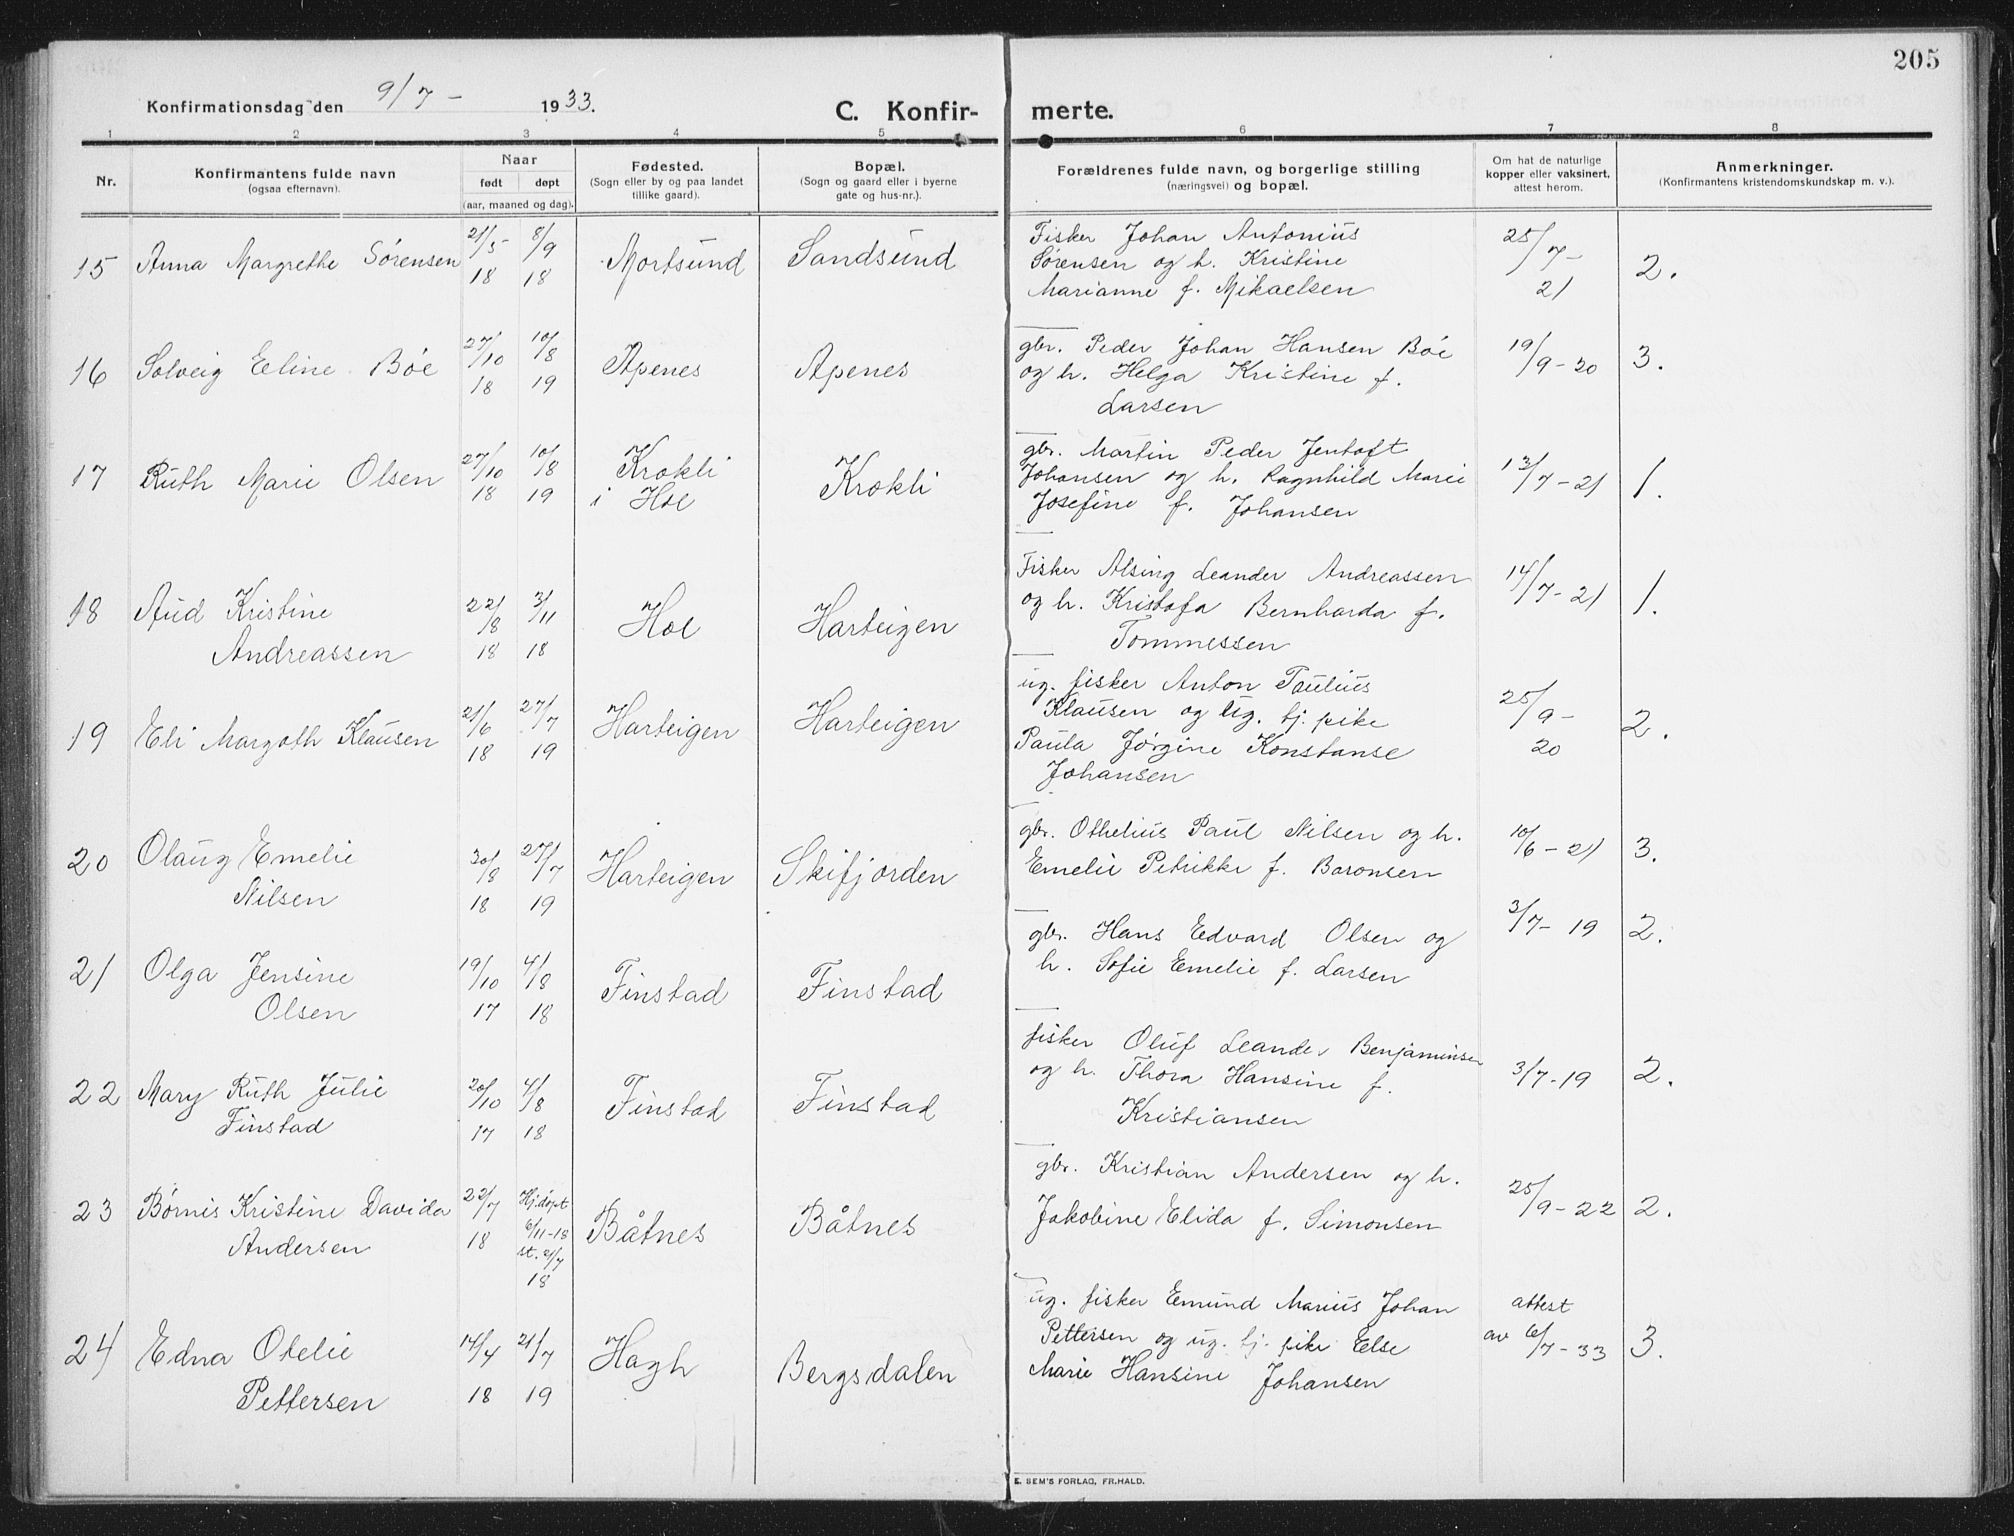 205
Konfirmationsdag den 9/7 - 1933.
C. Konfir- merte.
1 2 3 4 5 6 7 8
Nr.
Konfirmantens fulde navn
(ogsaa efternavn).
Naar
født døpt
(aar, maaned og dag).
Fødested.
(Sogn eller by og paa landet
tillike gaard).
Bopæl.
(Sogn og gaard eller i byerne
gate og hus-nr.).
Forældrenes fulde navn, og borgerlige stilling
(næringsvei) og bopæl.
Om hat de naturlige
kopper eller vaksinert,
attest herom.
Anmerkninger.
(Konfirmantens kristendomskundskap m. v.).
15 Anna Margrethe Sørensen 21/5 18 8/9 18 Mortsund Sandsund
Fisker Johan Antonius
Sørensen og h. Kristine
Marianne f. Mikaelsen
25/7- 21 2.
16 Solveig Eeline Bøe 27/10 18 10/8 19 Apenes Apenes
gbr. Peder Johan Hansen Bøe
og h. Helga Kristine f.
Larsen
19/9-20 3.
17 Ruth Marie Olsen 27/10 18 10/8 19 Krokli
i Hoe
Krokli
gbr. Martin Peder Jentoft
Johansen og h. Ragnhild Marie
Josefine f. Johansen
13/7-21 1.
18 Aud Kristine
Andreassen
22/8 18 3/11 18 Hoe Harteigen
Fisker Alsing Leander Andreassen
og h. Kristofa Bernharda f.
Tommessen
14/7-21 1.
19 Eli Margoth Klausen 21/6 18 27/7 19 Harteigen Harteigen
ug. fisker Anton Paulius
Klausen og ug. tj. pike
Paula Jørgine Konstanse
Johansen
25/9- 20 2.
20 Olaug Emelie
Nilsen
30/8 18 27/7 19 Harteigen Skifjorden
gbr. Othelius Paul Nilsen og h.
Emelie Petrikke f. Baronsen
10/6-21 3.
21 Olga Jensine
Olsen
19/10 17 4/8 18 Finstad Finstad
gbr. Hans Edvard Olsen og
h. Sofie Emelie f. Larsen
3/7-19 2.
22 Mary Ruth Julie
Finstad
20/10 17 4/8 18 Finstad Finstad
fisker Oluf Leander Benjaminsen
og h. Thora Hansine f.
Kristiansen
3/7-19 2.
23 Børnis Kristine Davida
Andersen
22/7 18 Hj.døpt
6/11-18
st. 21/7
18
Båtnes Båtnes
gbr. Kristian Andersen og h.
Jakobine Elida f. Simonsen
25/9-22 2.
24 Edna Otelie
Pettersen
14/4 18 21/7 19 Hagh Bergsdalen
ug. fisker Emund Marius Johan
Pettersen og ug. tj. pike Else
Marie Hansine Johansen
attest
av 6/7-33 3.
E. SEM'S FORLAG, FR.HALD.